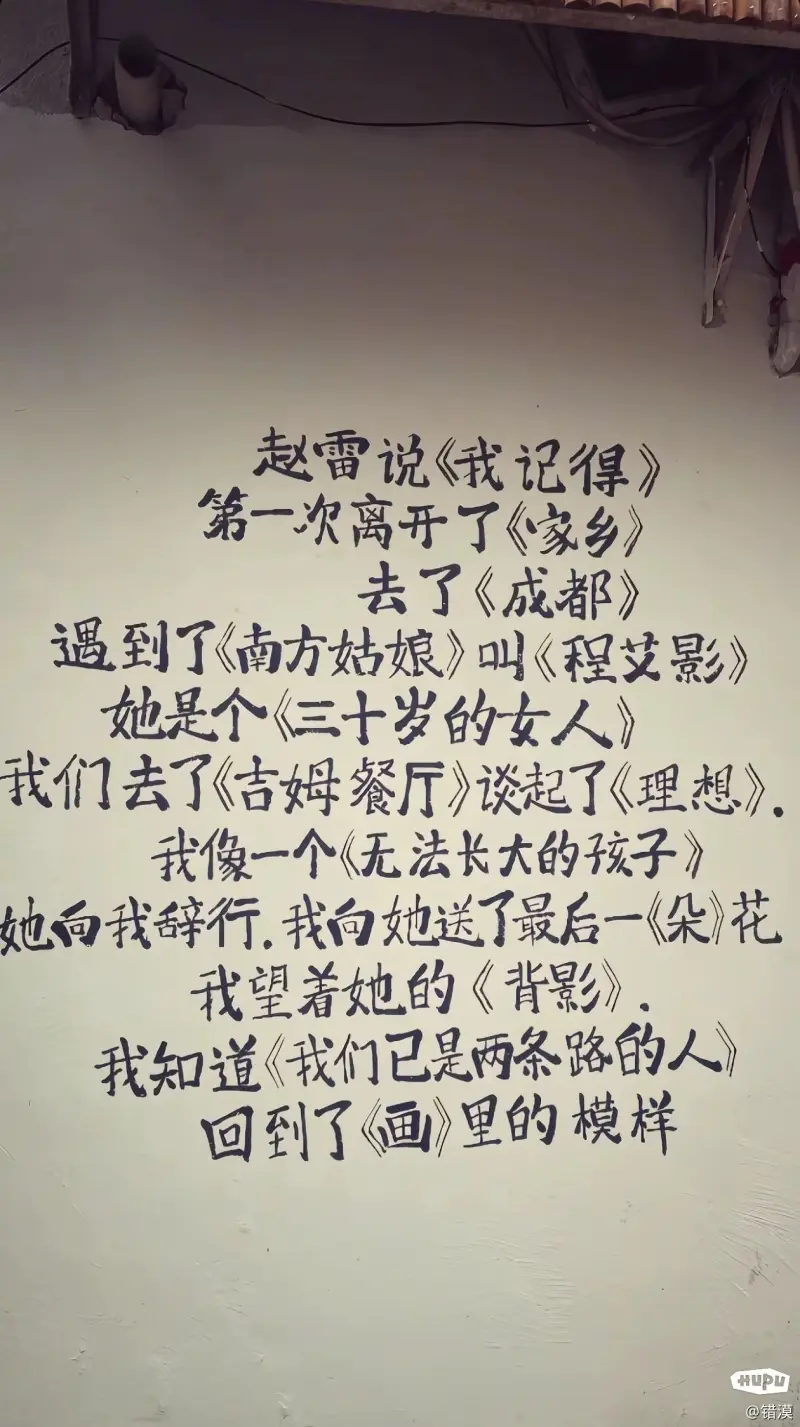 赵雷说《我记得》
第一次离开了《家乡》
去了《成都》
遇到了《南方姑娘》叫《程艾影》
她是个《三十岁的女人》
我们去了《吉姆餐厅》谈起了《理想》.
我像一个《无法长大的孩子》
她向我辞行.我向她送了最后一《朵》花
我望着她的《背影》.
我知道《我们已是两条路的人》
回到了《画》里的模样
HUPU
@错漠